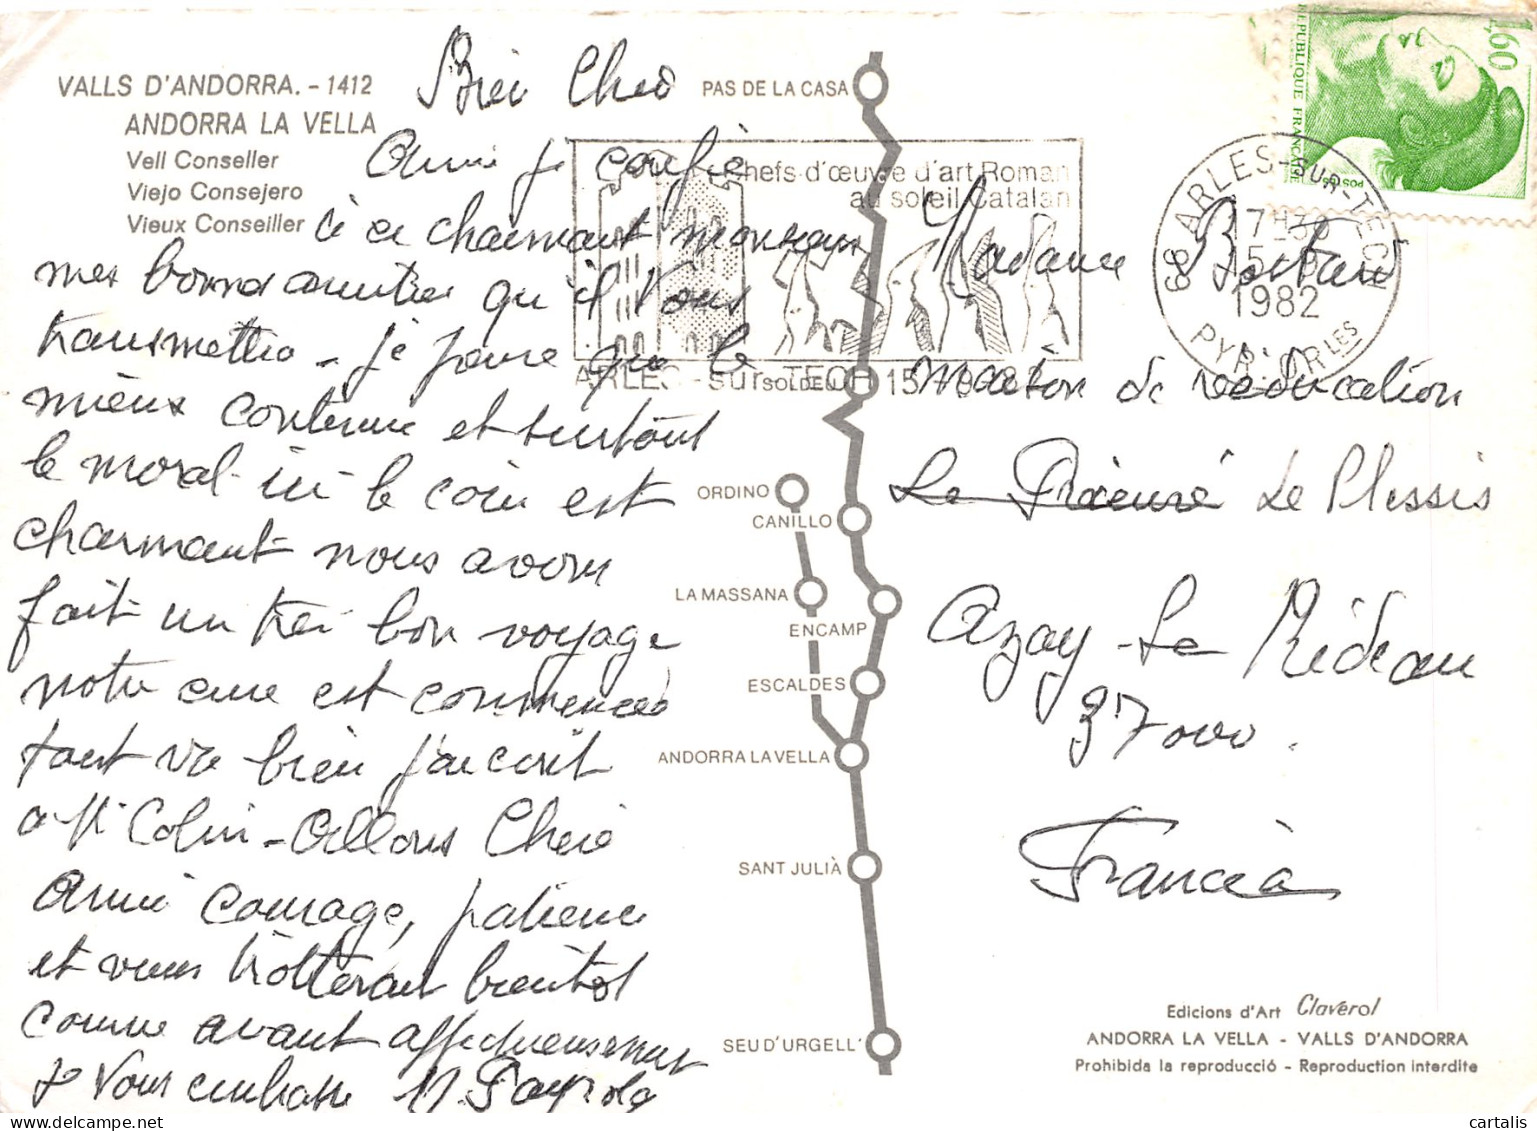 VALLS D'ANDORRA. - 1412
ANDORRA LA VELLA
Vell Conseller
Viejo Consejero
Vieux Conseiller
Bien Cheè
Amie je confie
à ce charmant morceau
mes bonnes amitiés qu'il vous
transmettra - je pense que le
mieux continue et surtout
le moral - ici le coin est
charmant nous avons
fait un très bon voyage
notre cure est commencée
tout va bien j'ai écrit
a Mr Colin - Allons Chère
Amie courage, patience
et vous trotterait bientôt
comme avant affectueusement
je vous embrasse M Payrola
PAS DE LA CASA
SOLDEU
ORDINO
CANILLO
LA MASSANA
ENCAMP
ESCALDES
ANDORRA LA VELLA
SANT JULIÀ
SEU D'URGELL'
chefs d'œuvre d'art Roman
au soleil Catalan
ARLES-sur-TECH
66 ARLES-SUR-TECH
17H30
15
1982
PYR. OR LES
1,60
REPUBLIQUE FRANÇAISE
POSTES
Madame
maison de rééducation
Le Prieuré Le Plessis
Azay-Le Rideau
37000.
Francia
Edicions d'Art Claverol
ANDORRA LA VELLA - VALLS D'ANDORRA
Prohibida la reproducció - Reproduction interdite
cartalis